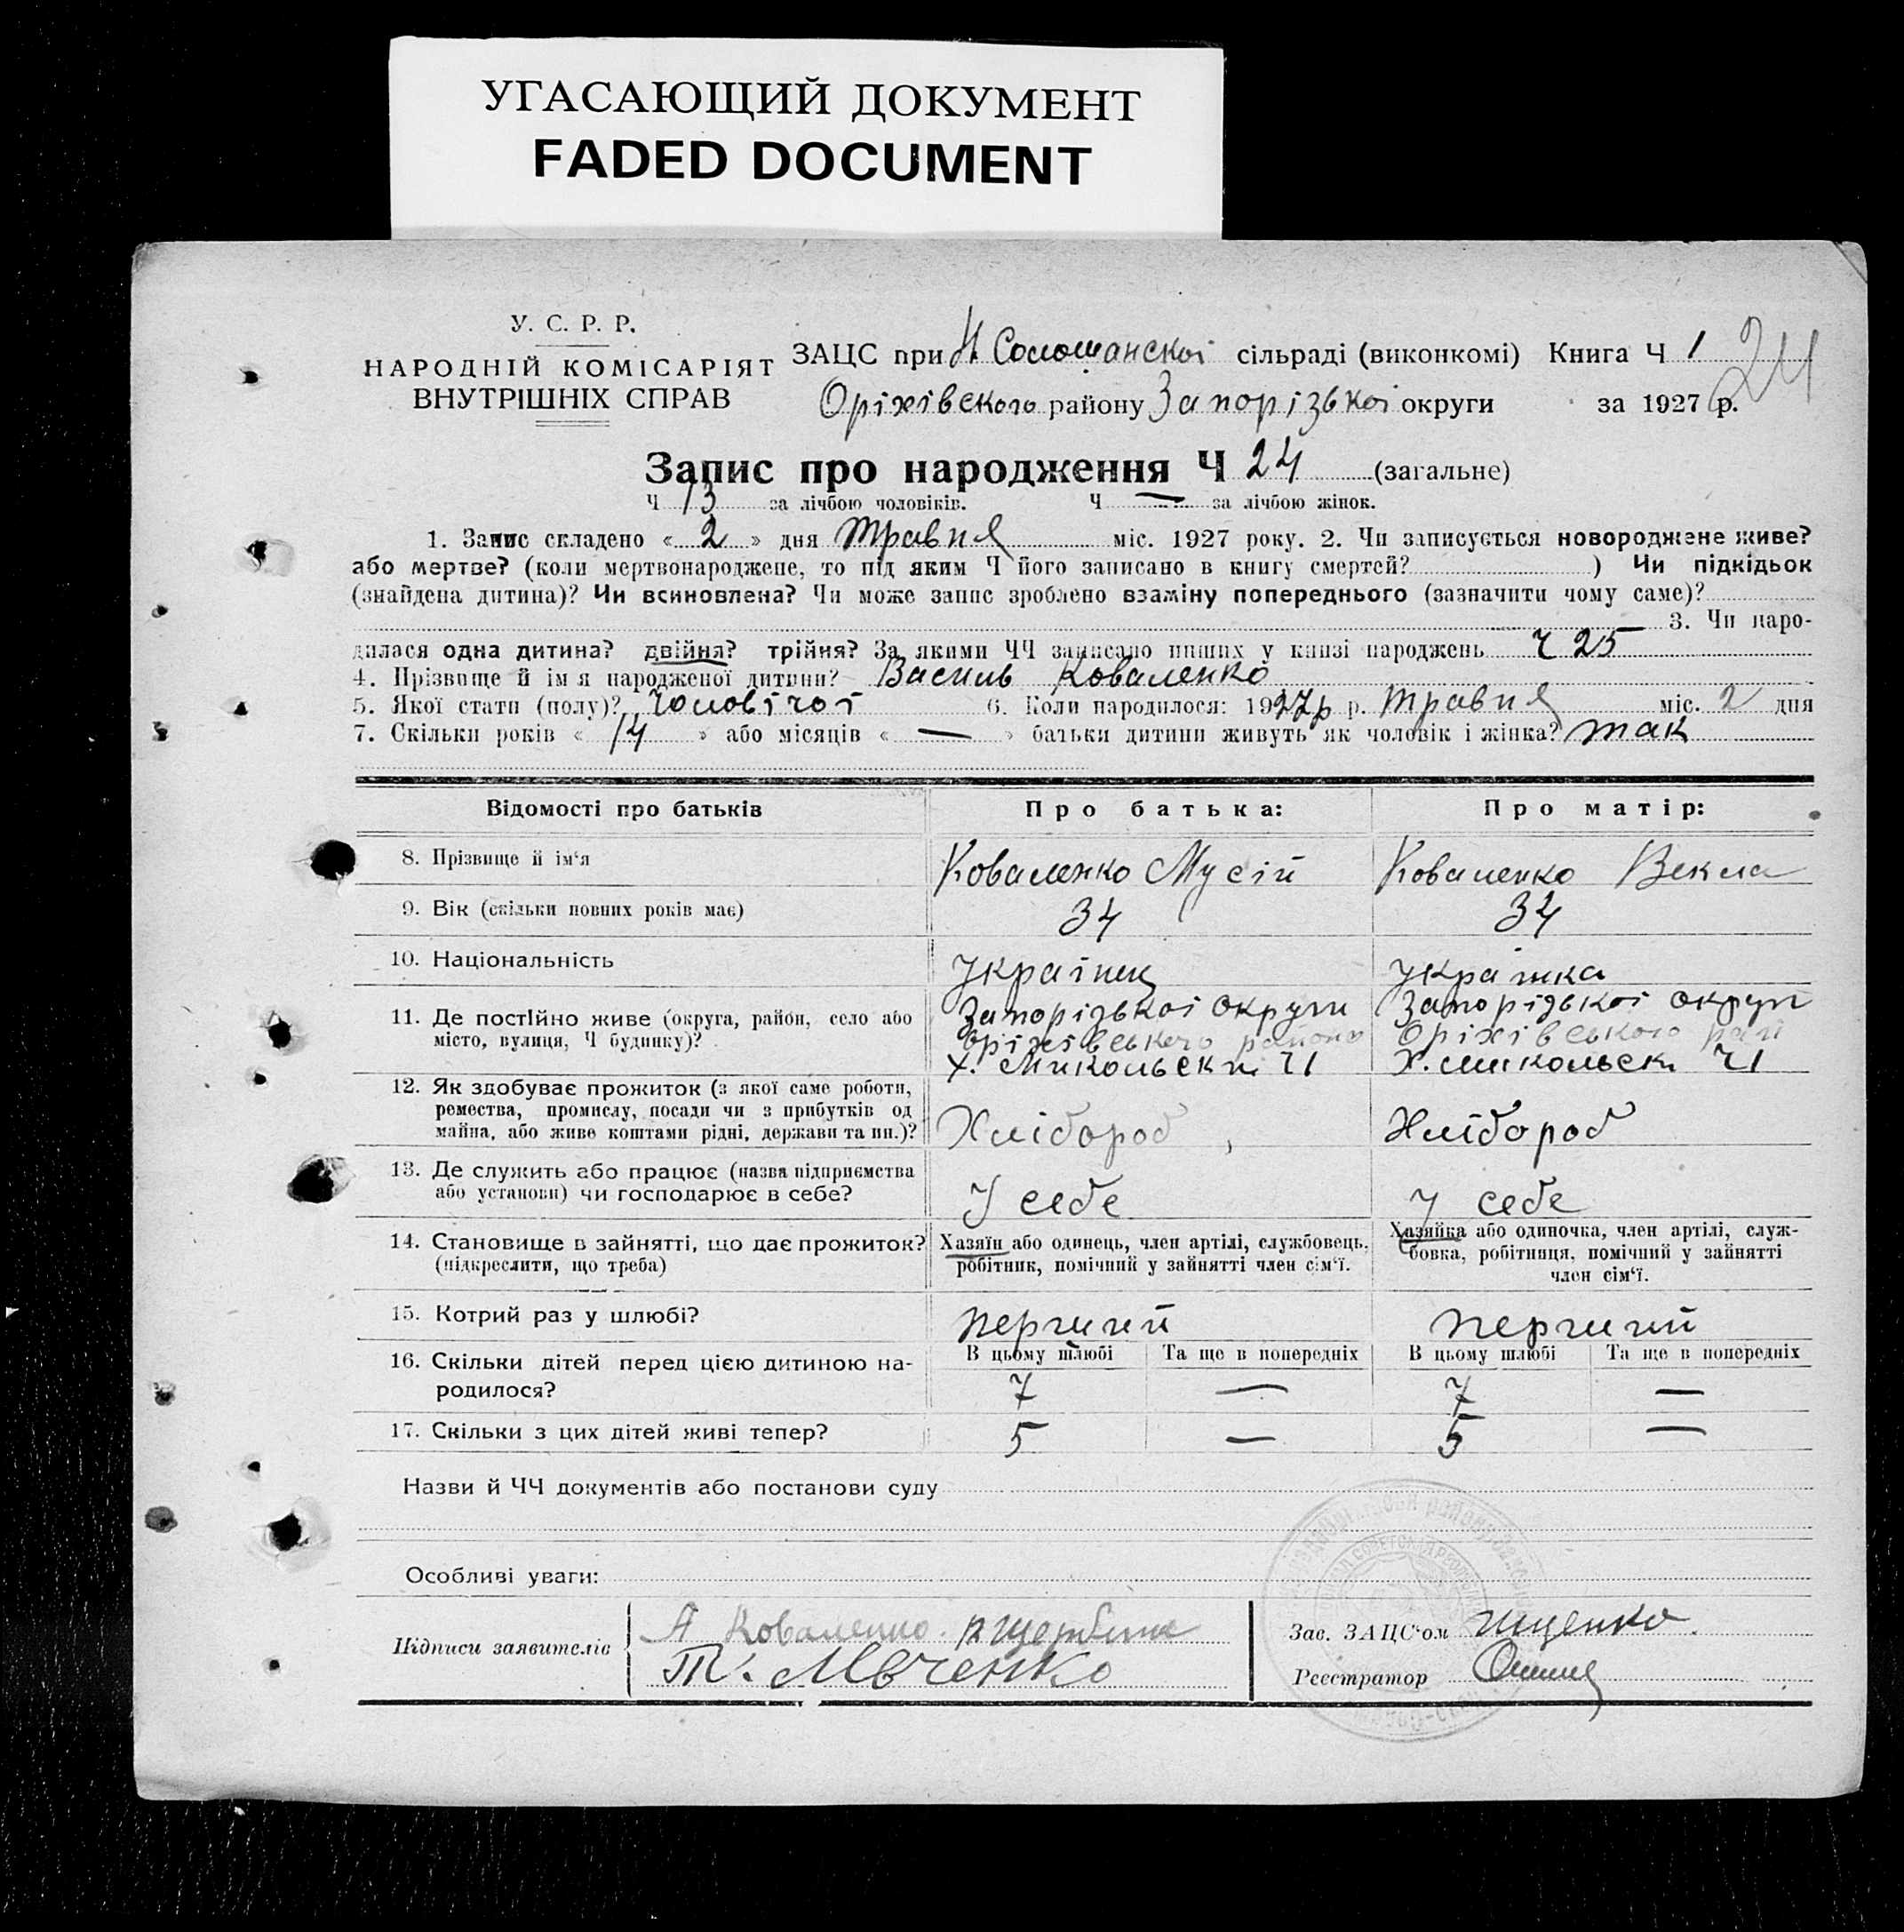 УГАСАЮЩИЙ ДОКУМЕНТ
FADED DOCUMENT
У. С. Р. Р.
НАРОДНІЙ КОМІСАРІЯТ
ВНУТРІШНІХ СПРАВ
ЗАЦС при Н Солошанскоі сільраді (виконкомі) Книга Ч 1
24
Оріхівского району Запорізькоі округи за 1927 р.
Запис про народження Ч 24 (загальне)
Ч 13 за лічбою чоловіків. Ч — за лічбою жінок.
1. Запис складено « 2 » дня Травня міс. 1927 року. 2. Чи записується новороджене живе?
або мертве? (коли мертвонароджене, то під яким Ч його записано в книгу смертей? ) Чи підкідьок
(знайдена дитина)? Чи всиновлена? Чи може запис зроблено взаміну попереднього (зазначити чому саме)?
3. Чи наро-
дилася одна дитина? двійня? трійня? За якими ЧЧ записано инших у книзі народжень Ч 25
4. Прізвище й ім я народженої дитини? Василь Коваленко
5. Якої стати (полу)? Чоловічоі 6. Коли народилося: 1927р р. Травня міс. 2 дня
7. Скільки років « 14 » або місяців « — » батьки дитини живуть як чоловік і жінка? так
Відомості про батьків Про батька: Про матір:
8. Прізвище й ім'я Коваленко Мусій Коваленко Векла
9. Вік (скільки повних років має) 34 34
10. Національність Українц Українка
11. Де постійно живе (округа, район, село або місто, вулиця, Ч будинку)?
Запорізькоі округи Запорізькоі округи
Оріхівського району Оріхівського рай
х. Микольский Ч1 Х. Микольск Ч1
12. Як здобуває прожиток (з якої саме роботи,
ремества, промислу, посади чи з прибутків од
майна, або живе коштами рідні, держави та ин.)? Хлібороб Хлібороб
13. Де служить або працює (назва підприємства
або установи) чи господарює в себе? У себе У себе
14. Становище в зайнятті, що дає прожиток?
(підкреслити, що треба)
Хазяїн або одинець, член артілі, службовець,
робітник, помічний у зайнятті член сім'ї.
Хазяйка або одиночка, член артілі, служ-
бовка, робітниця, помічний у зайнятті
член сім'ї.
15. Котрий раз у шлюбі? перший перший
16. Скільки дітей перед цією дитиною на-
родилося?
В цьому шлюбі Та ще в попередніх В цьому шлюбі Та ще в попередніх
7 — 7 —
17. Скільки з цих дітей живі тепер? 5 — 5 —
Назви й ЧЧ документів або постанови суду
Особливі уваги:
Підписи заявителів
А Коваленко.
Зав. ЗАЦС'ом
Реєстратор